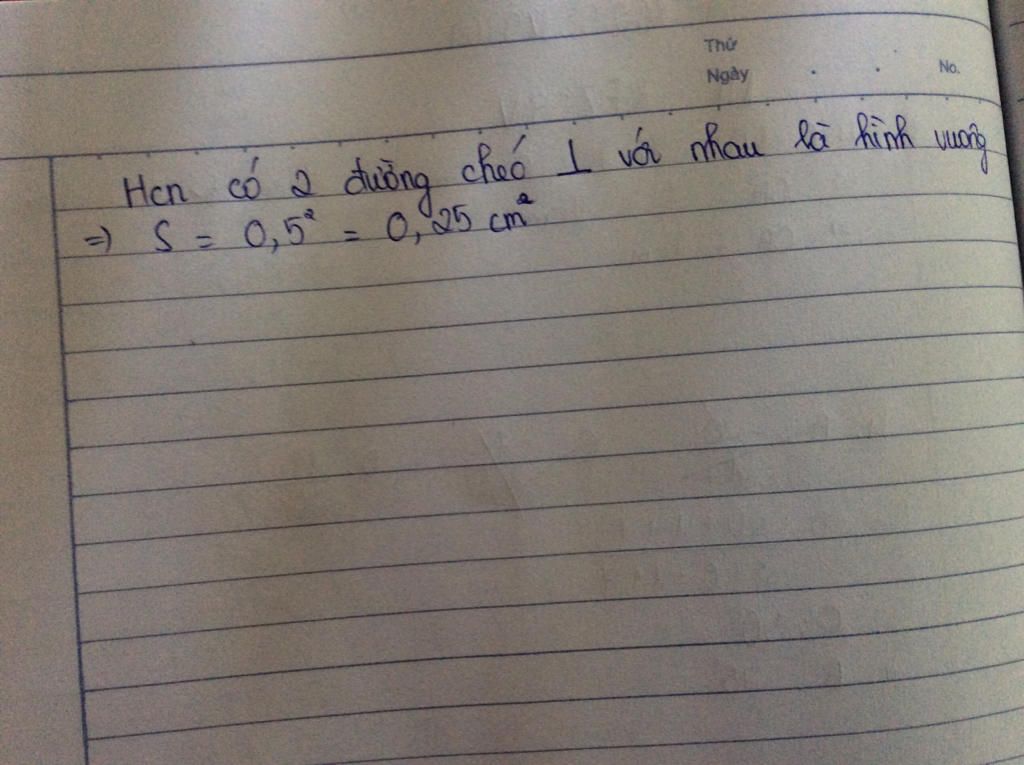 Thứ
Ngày . . No.
Hcn có 2 đường chéo ⊥ với nhau là hình vuông
=) S = 0,5² = 0,25 cm²